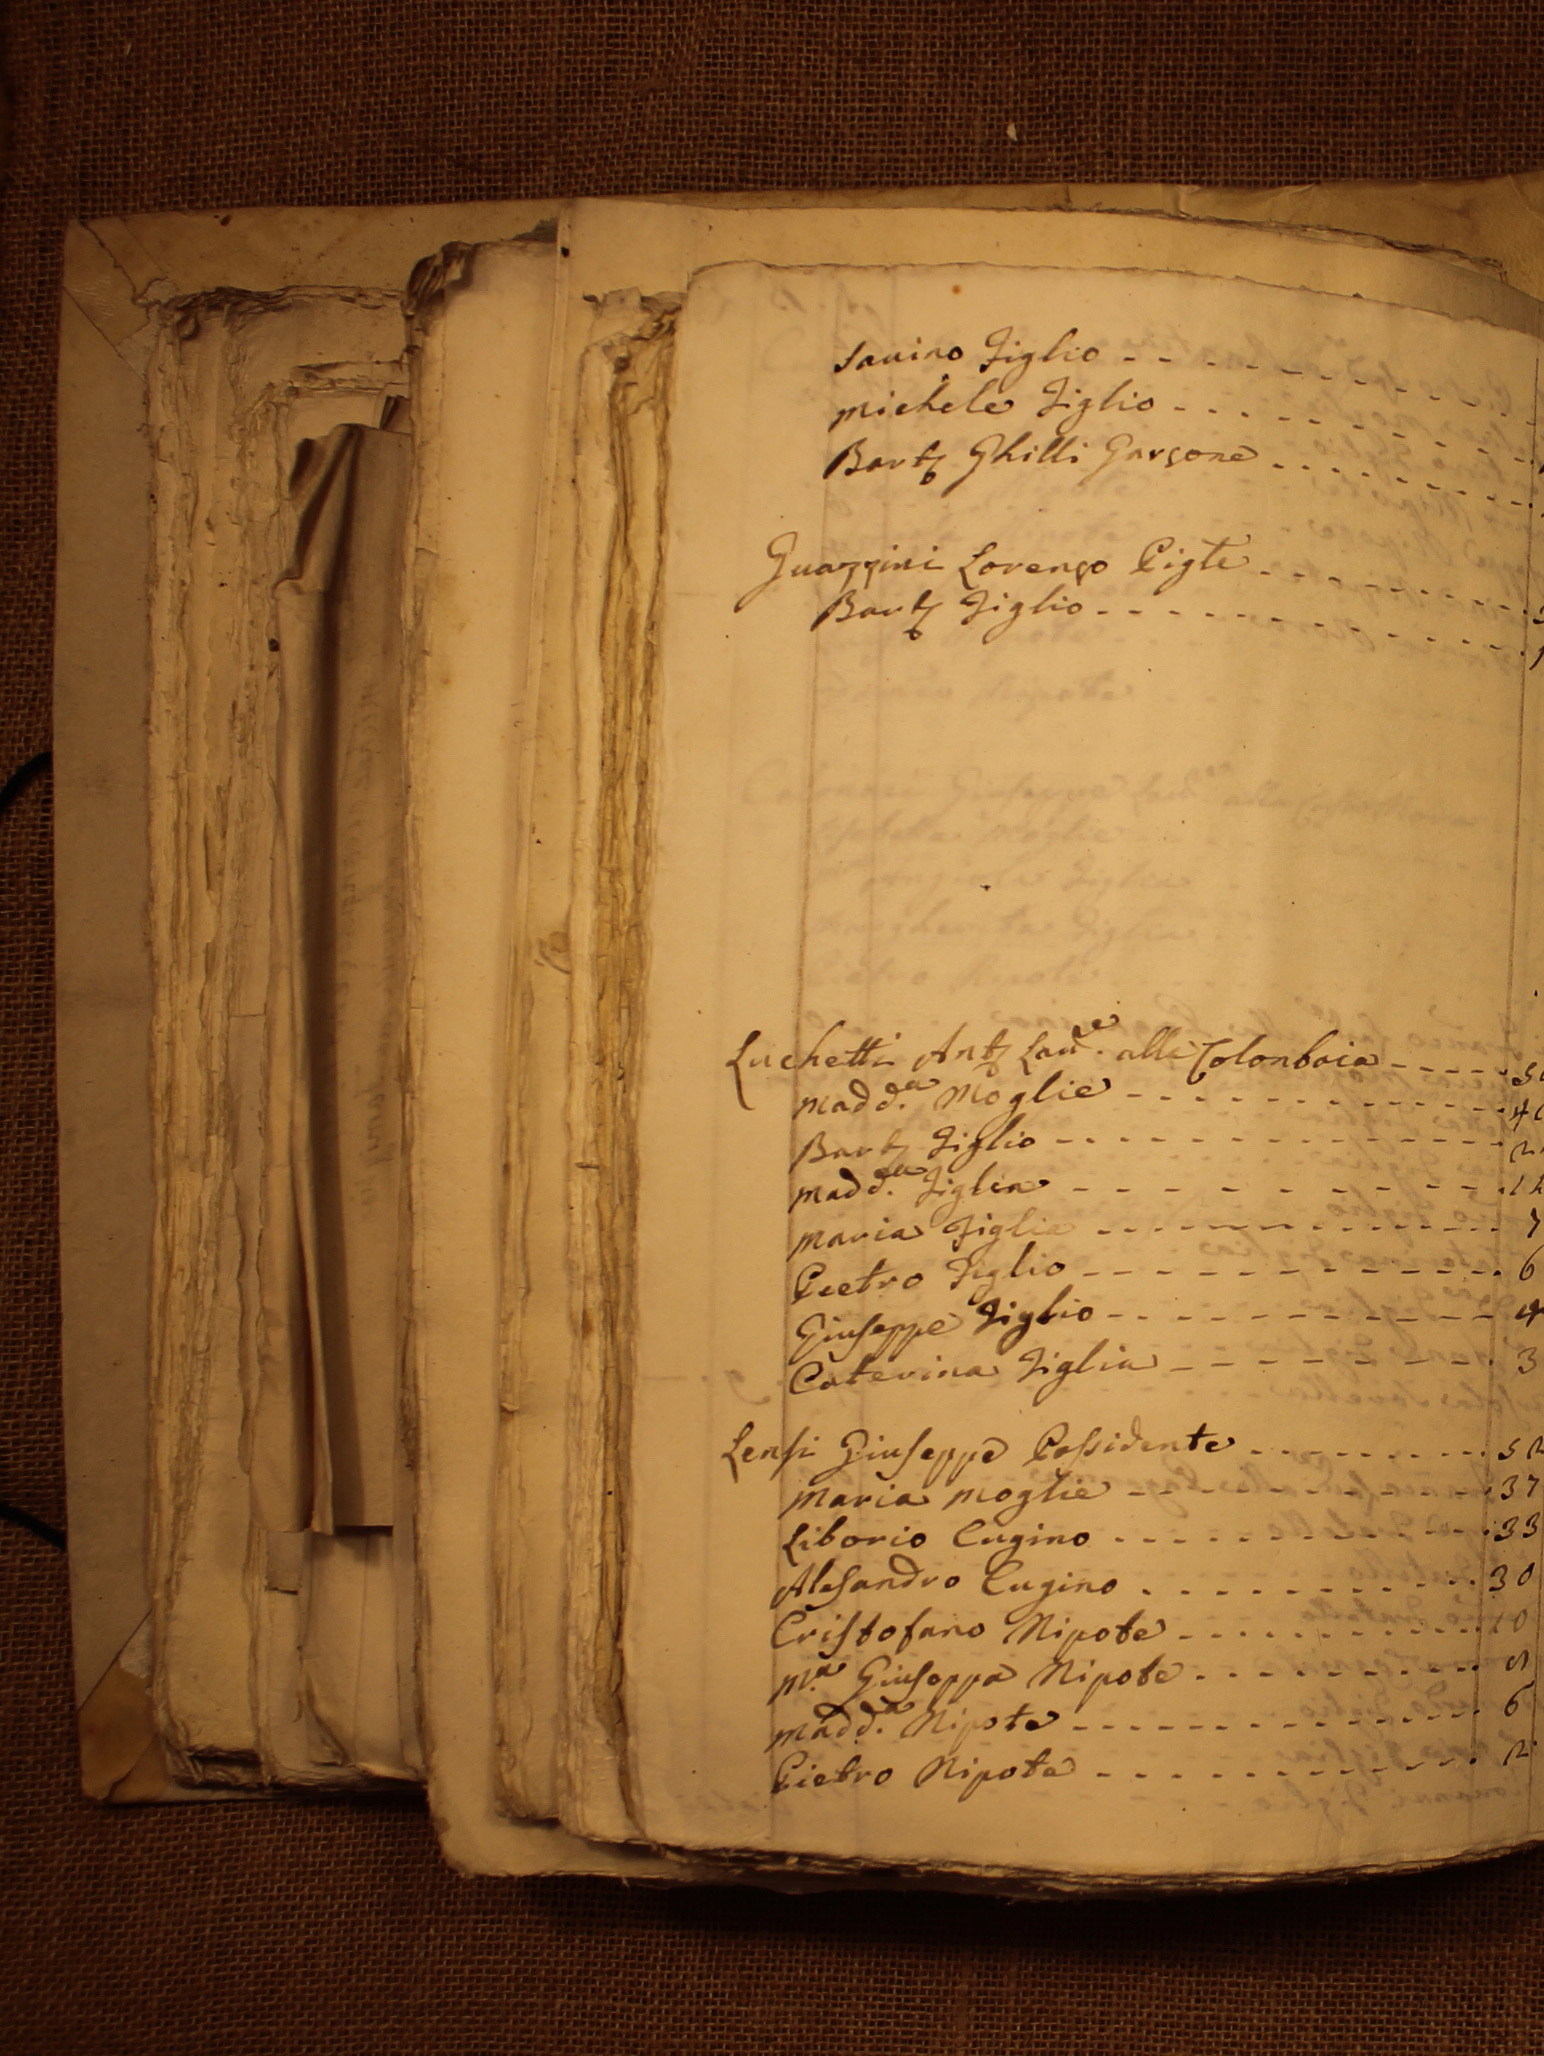 Savino Figlio - - - - - - - - -
Michele Figlio - - - - - - - - -
Bart.o Ghilli Garzone - - - - - - - -
Guazzini Lorenzo Pigte - - - - - - - -
Bart.o Figlio - - - - - - - - - -
Luchetti Ant.o Lau.e alla Colonbaia - - - -
Madd.a Moglie - - - - - - - - -
Bart.o Figlio - - - - - - - - -
Madd.a Figlia - - - - - - - - -
Maria Figlia - - - - - - - - - 7
Pietro Figlio - - - - - - - - - 6
Giuseppe Figlio - - - - - - - - - 4
Caterina Figlia - - - - - - - - - 3
Lensi Giuseppe Possidente - - - - - - - 52
Maria Moglie - - - - - - - - - 37
Liborio Cugino - - - - - - - - - 33
Alesandro Cugino - - - - - - - - - 30
Cristofano Nipote - - - - - - - - - 10
M.a Giuseppa Nipote - - - - - - - -
Madd.a Nipote - - - - - - - - - 6
Pietro Nipote - - - - - - - - - 2